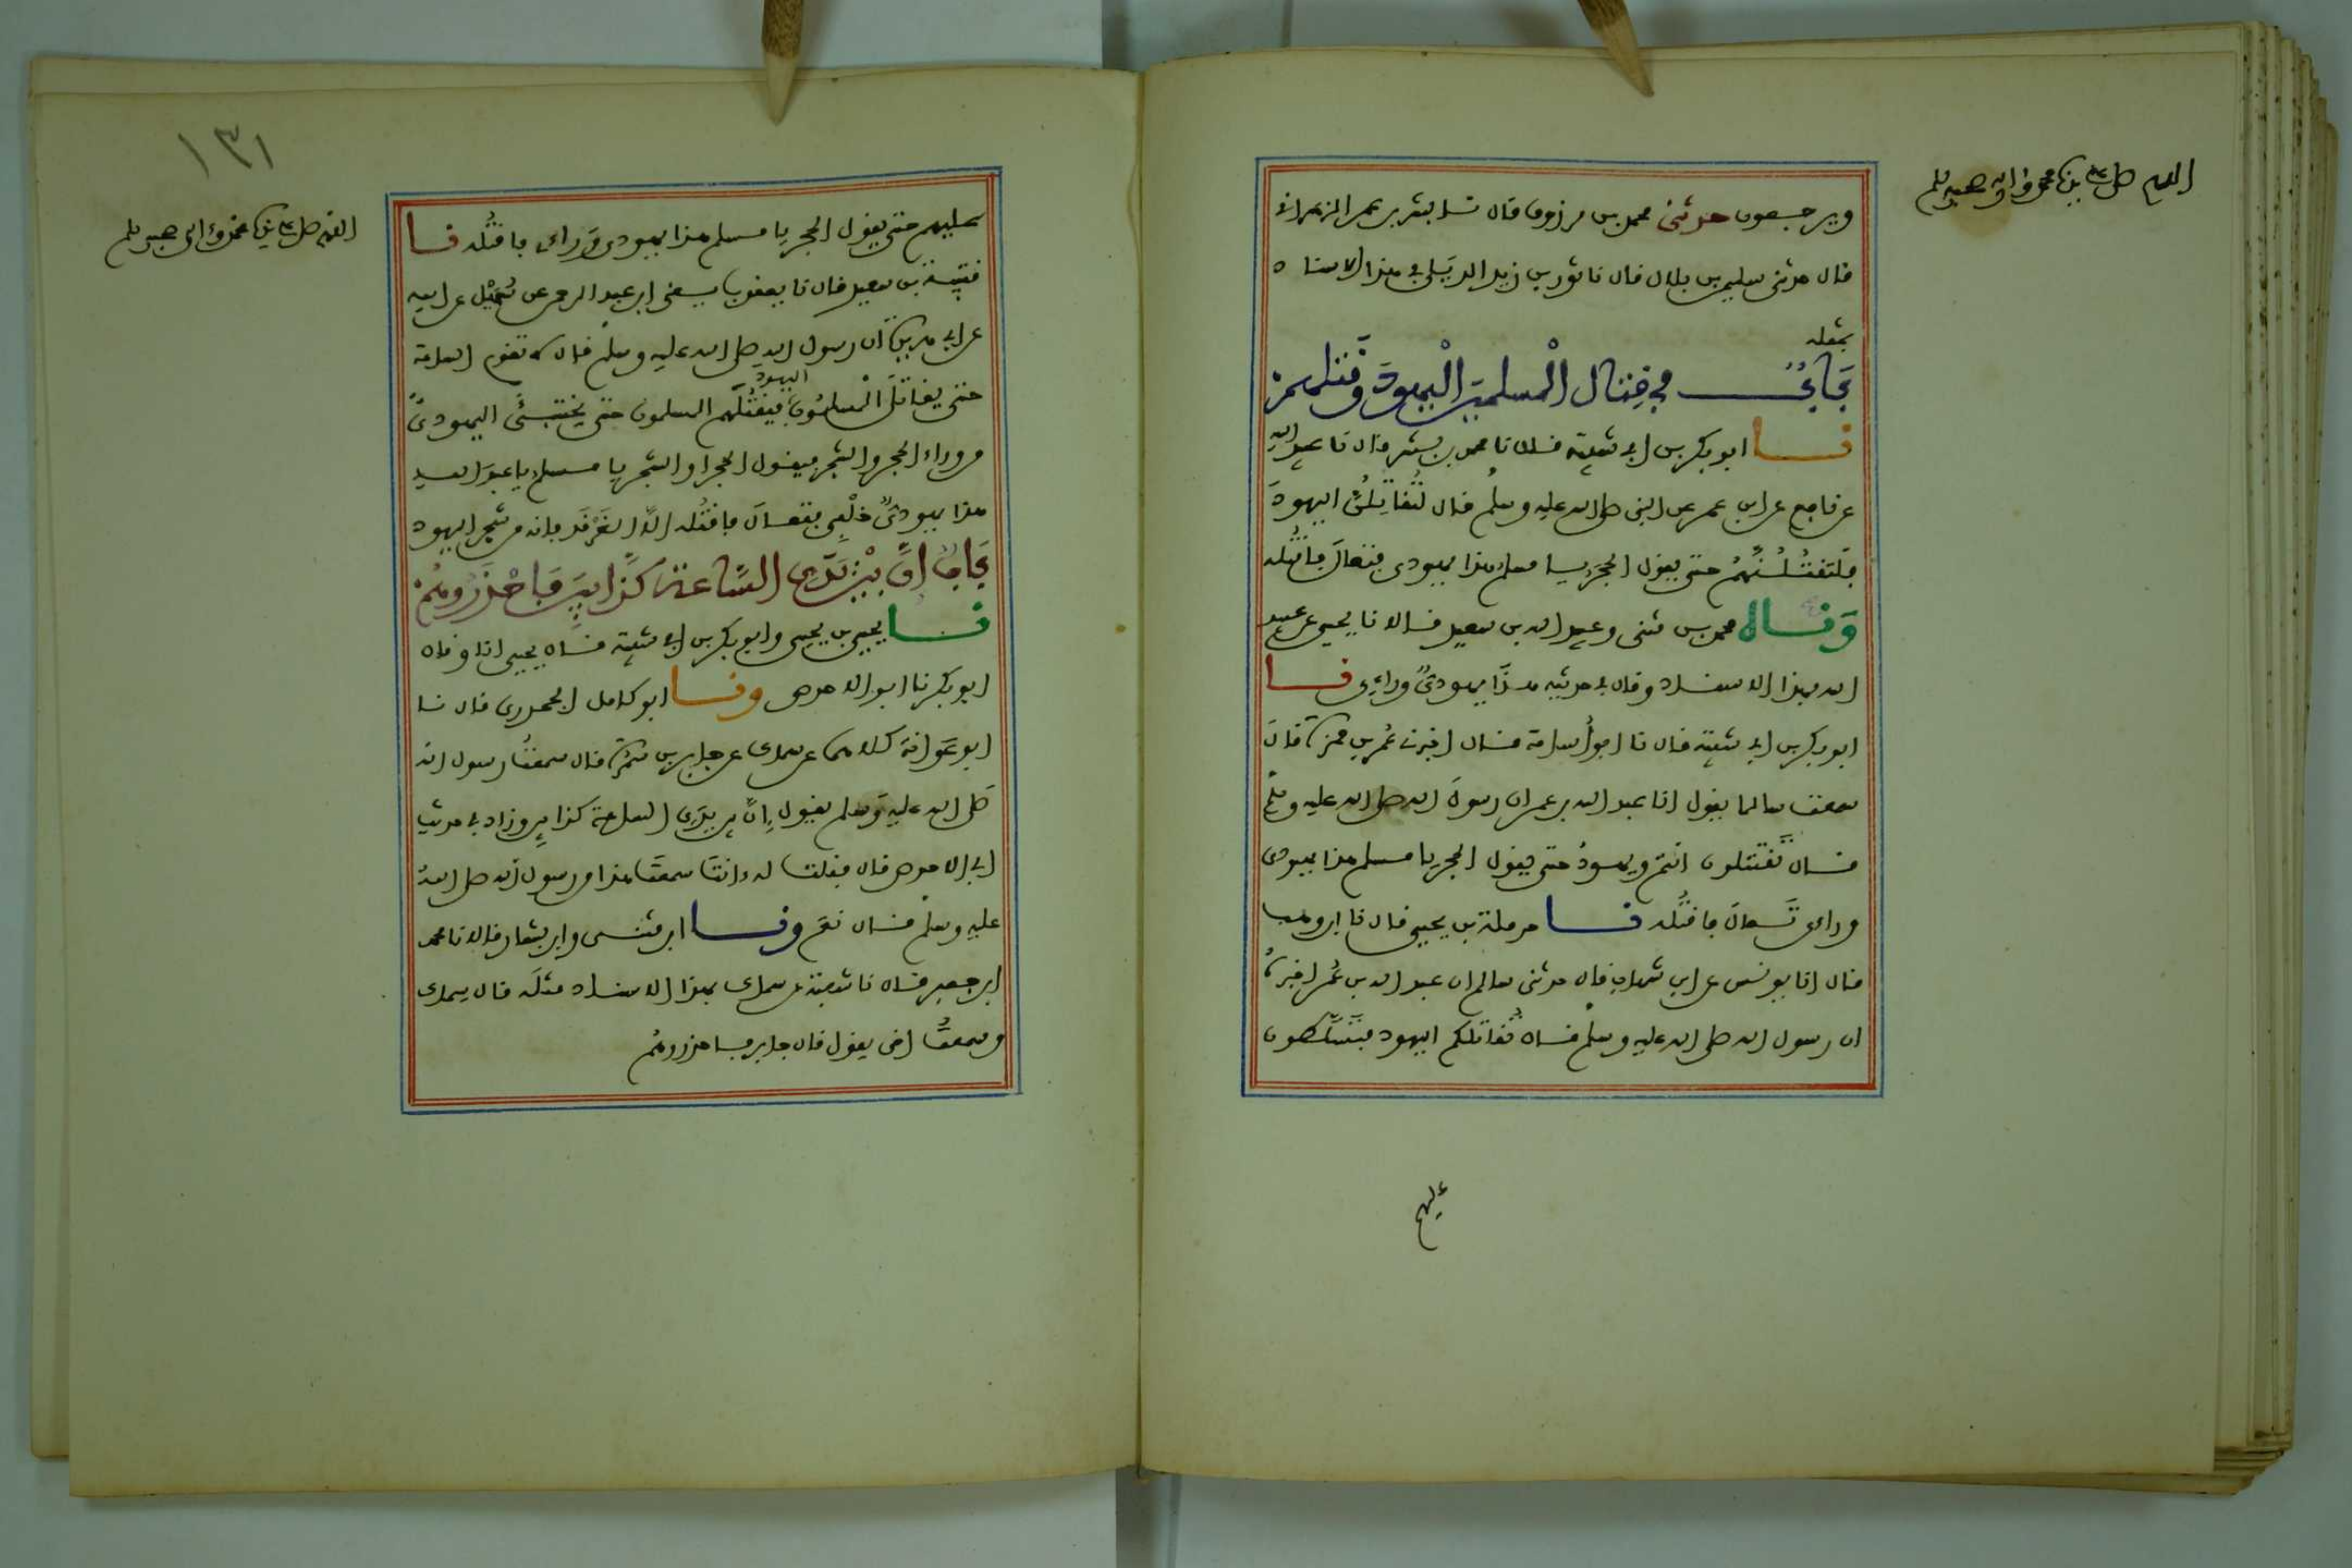 اللهم صل على نبينا محمد واله وصحبه وسلم
ويرجعون حدثني محمد بن مرزوق قال نا بشر بن عمر الزهراني
قال حدثني سليمن بن بلال قال نا ثور بن زيد الديلي في هذا الاسناد
بمثله
باب في قتال المسلمين اليهود وقتلهم
نا ابو بكر بن ابي شيبة قال نا محمد بن بشر قال نا عبيد الله
عن نافع عن ابن عمر عن النبي صلى الله عليه وسلم قال لتقاتلن اليهود
فلتقتلنهم حتى يقول الحجر يا مسلم هذا يهودي فتعال فاقتله
وناه محمد بن مثنى وعبيد الله بن سعيد قالا نا يحيى عن عبيد
الله بهذا الاسناد وقال في حديثه هذا يهودي وراءي نا
ابو بكر بن ابي شيبة قال نا ابو أسامة قال اخبرني عمر بن حمزة قال
سمعت سالما يقول انا عبد الله بن عمر ان رسول الله صلى الله عليه وسلم
قال تقتتلون انتم ويهود حتى يقول الحجر يا مسلم هذا يهودي
وراءي تعال فاقتله نا حرملة بن يحيى قال نا ابن وهب
قال انا يونس عن ابن شهاب قال حدثني سالم ان عبد الله بن عمر اخبره
ان رسول الله صلى الله عليه وسلم قال تقاتلكم اليهود فتسلطون
عليهم
١٣١
اللهم صل على نبينا محمد واله وصحبه وسلم
عليهم حتى يقول الحجر يا مسلم هذا يهودي وراءي فاقتله نا
قتيبة بن سعيد قال نا يعقوب يعني ابن عبد الرحمن عن سهيل عن ابيه
عن ابي هريرة ان رسول الله صلى الله عليه وسلم قال لا تقوم الساعة
حتى يقاتل المسلمون اليهود فيقتلهم المسلمون حتى يختبئ اليهودي
من وراء الحجر والشجر فيقول الحجر او الشجر يا مسلم يا عبد الله
هذا يهودي خلفي فتعال فاقتله الا الغرقد فانه من شجر اليهود
باب ان بين يدي الساعة كذابين فاحذروهم
نا يحيى بن يحيى وابو بكر بن ابي شيبة قال يحيى انا وقال
ابو بكر نا ابو الاحوص ونا ابو كامل الجحدري قال نا
ابو عوانة كلاهما عن سماك عن جابر بن سمرة قال سمعت رسول الله
صلى الله عليه وسلم يقول إن بين يدي الساعة كذابين وزاد في حديث
ابي الاحوص قال فقلت له ءانت سمعت هذا من رسول الله صلى الله
عليه وسلم قال نعم ونا ابن مثنى وابن بشار قالا نا محمد
ابن جعفر قال نا شعبة عن سماك بهذا الاسناد مثله قال سماك
وسمعت اخي يقول قال جابر فاحذروهم